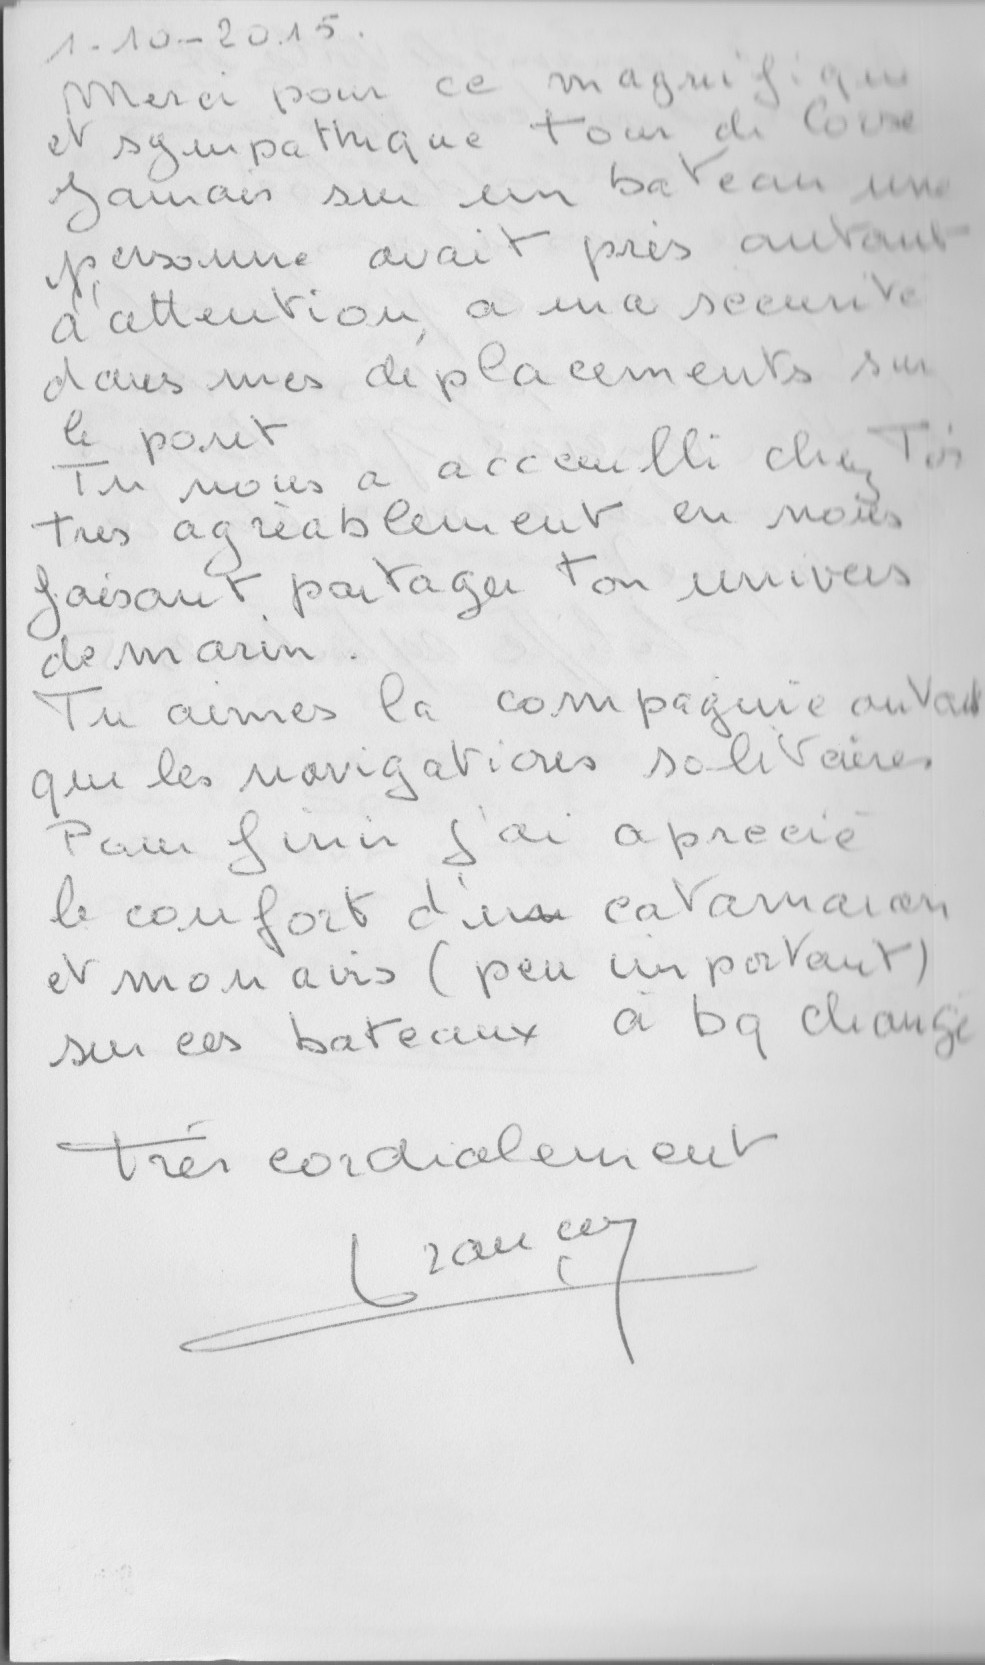 1-10-2015.
Merci pour ce magnifique
et sympathique tour de Corse
Jamais sur un bateau une
personne avait près autant
d'attention, a ma sécurité
dans mes déplacements sur
le pont
Tu nous a acceuilli chez Toi
tres agrèablement en nous
faisant partager ton univers
de marin.
Tu aimes la compagnie autant
que les navigations solitaires
Pour finir j'ai aprecié
le confort d'un catamaran
et mon avis (peu important)
sur ces bateaux à bq changé
très cordialement